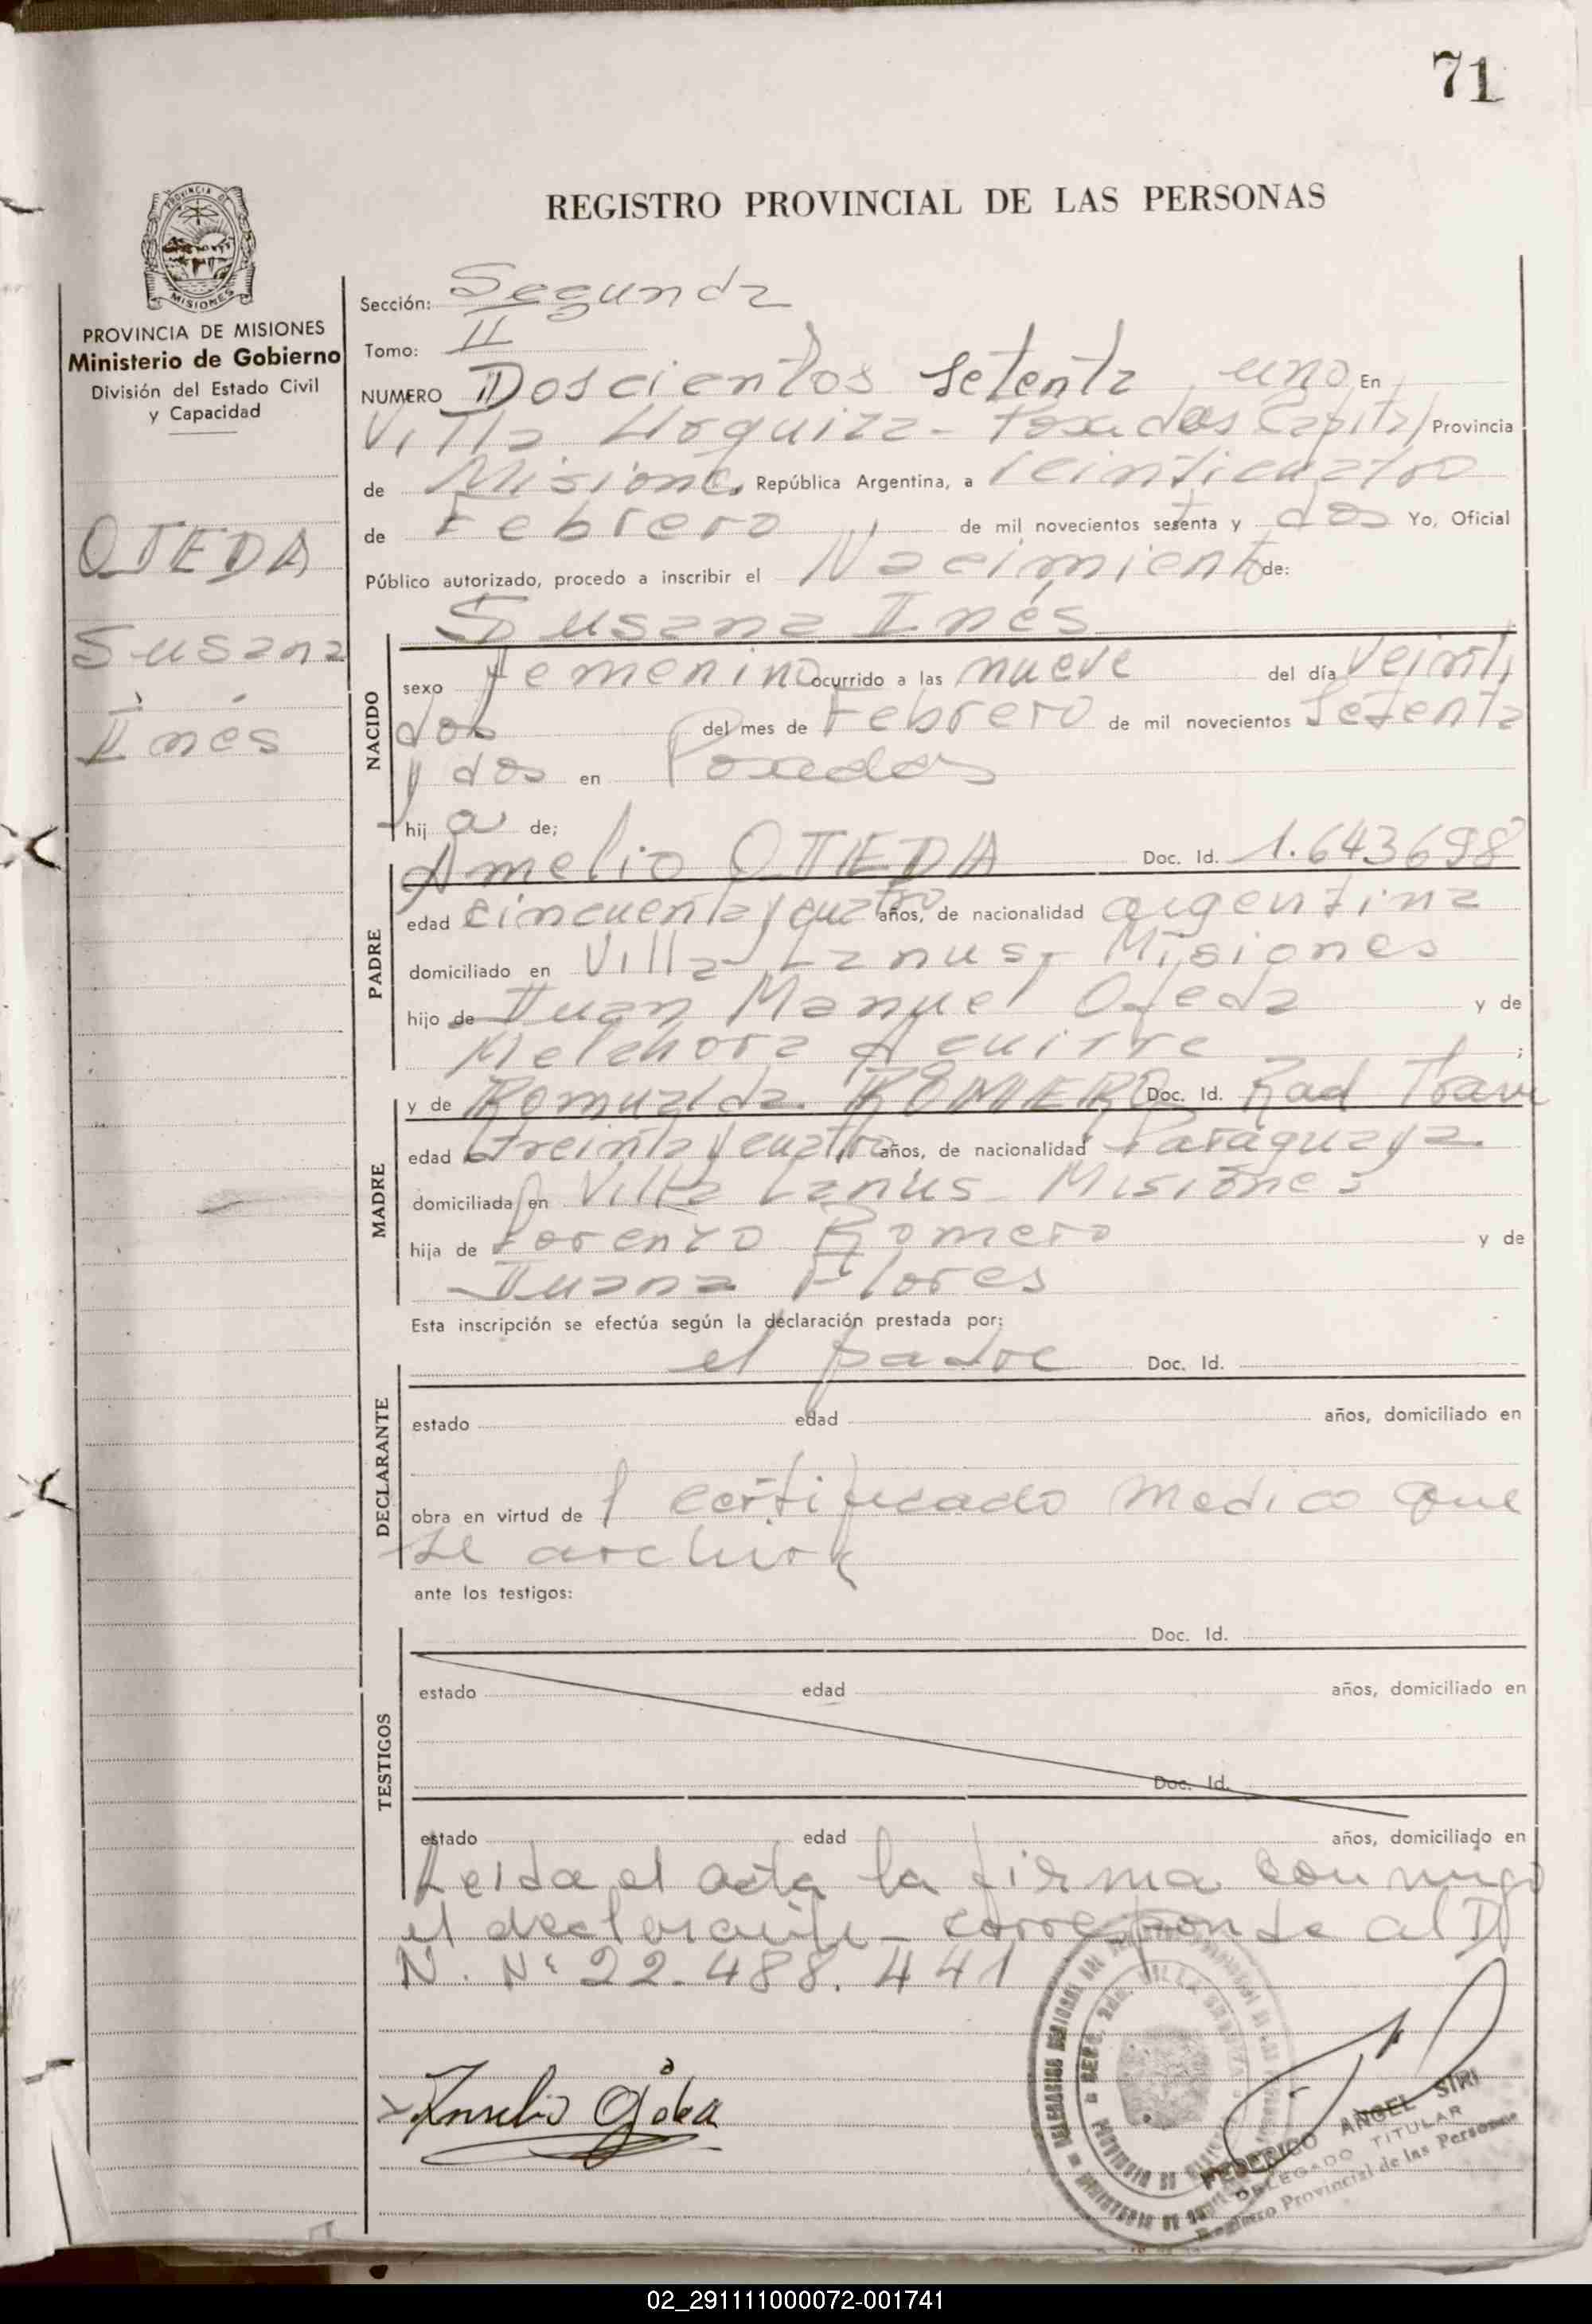 71
REGISTRO PROVINCIAL DE LAS PERSONAS
PROVINCIA DE MISIONES
Ministerio de Gobierno
División del Estado Civil
y Capacidad
OJEDA
Susana
Inés
Sección: Segunda
Tomo: II
NUMERO Doscientos setenta y uno En
Villa Urquiza - Posadas Capital Provincia
de Misiones República Argentina, a Veinticuatro
de Febrero de mil novecientos setenta y dos Yo, Oficial
Público autorizado, procedo a inscribir el Nacimiento de:
Susana Inés
NACIDO
sexo femenino ocurrido a las nueve del día Veinti
dos del mes de Febrero de mil novecientos Setenta
y dos en Posadas
hij a de;
Amelio OJEDA Doc. Id. 1.643698
PADRE
edad cincuenta y cuatro años, de nacionalidad argentina
domiciliado en Villa Lanus, Misiones
hijo de Juan Manuel Ojeda y de
Melchora Aguirre ;
y de Romualda ROMERO Doc. Id. Rad
MADRE
edad treinta y cuatro años, de nacionalidad Paraguaya
domiciliada en Villa Lanús - Misiones
hija de Lorenzo Romero y de
Juana Flores
Esta inscripción se efectúa según la declaración prestada por:
el padre Doc. Id.
DECLARANTE
estado edad años, domiciliado en
obra en virtud de l certificado medico que
se archiva
ante los testigos:
Doc. Id.
TESTIGOS
estado edad años, domiciliado en
Doc. Id.
estado edad años, domiciliado en
Leida el acta la firma conmigo
el declarante - corresponde al D
N. Nº 22.488.441
Ojeda
FEDERICO ANGEL SIRI
DELEGADO TITULAR
Registro Provincial de las Personas
02_291111000072-001741